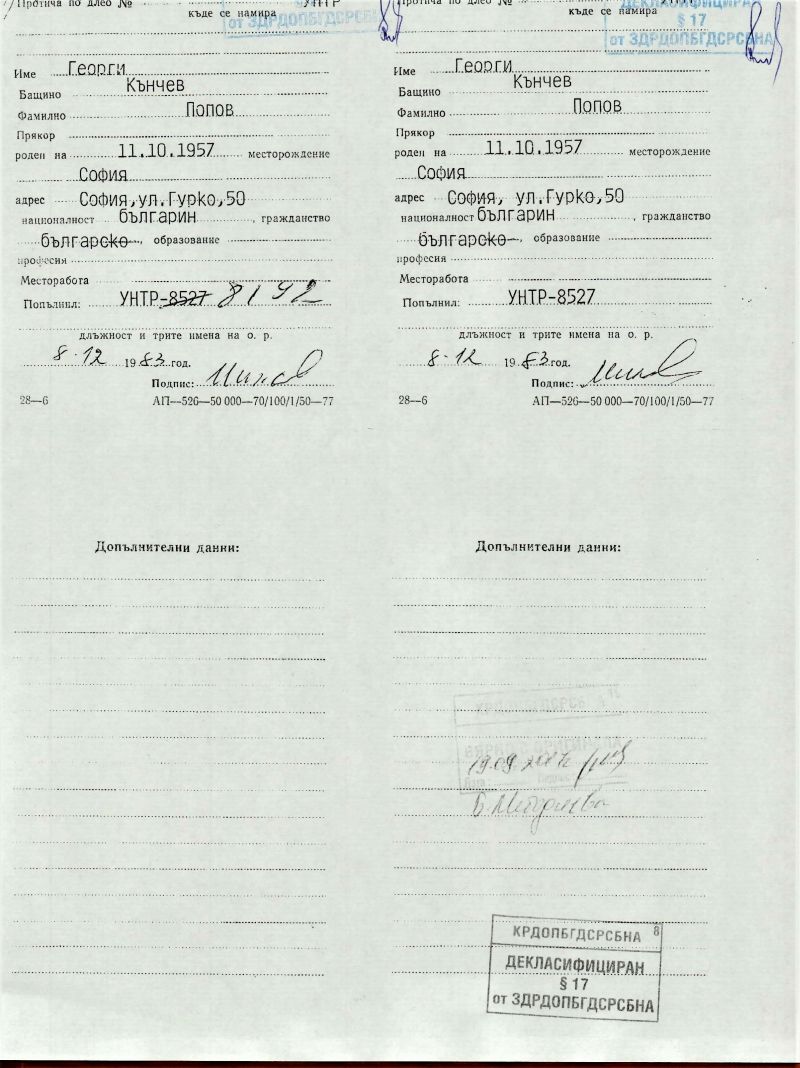 Протича по длео №
УНТР
къде се намира
от ЗДРДОПБГДСРСБНА
Име Георги
Бащино Кънчев
Фамилно Попов
Прякор
роден на 11.10.1957 месторождение
София
адрес София,ул.Гурко,50
националност българин, гражданство
българско, образование
професия
Месторабота
Попълнил: УНТР-8527 8142
длъжност и трите имена на о. р.
8.12 1983 год.
Подпис:
28—6 АП—526—50 000—70/100/1/50—77
Допълнителни данни:
Протича по длео №
къде се намира
ДЕКЛАСИФИЦИРАН
§ 17
от ЗДРДОПБГДСРСБНА
Име Георги
Бащино Кънчев
Фамилно Попов
Прякор
роден на 11.10.1957 месторождение
София
адрес София, ул.Гурко,50
националност българин, гражданство
българско, образование
професия
Месторабота
Попълнил: УНТР-8527
длъжност и трите имена на о. р.
8.12 1983 год.
Подпис:
28—6 АП—526—50 000—70/100/1/50—77
Допълнителни данни:
КРДОПБГДСРСБНА 8
ДЕКЛАСИФИЦИРАН
§ 17
от ЗДРДОПБГДСРСБНА